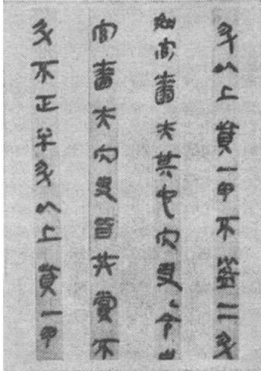 升以上貲一甲不盈二升
如官嗇夫其它冗吏令史
官嗇夫冗吏皆共賞不
斗不正半升以上貲一甲